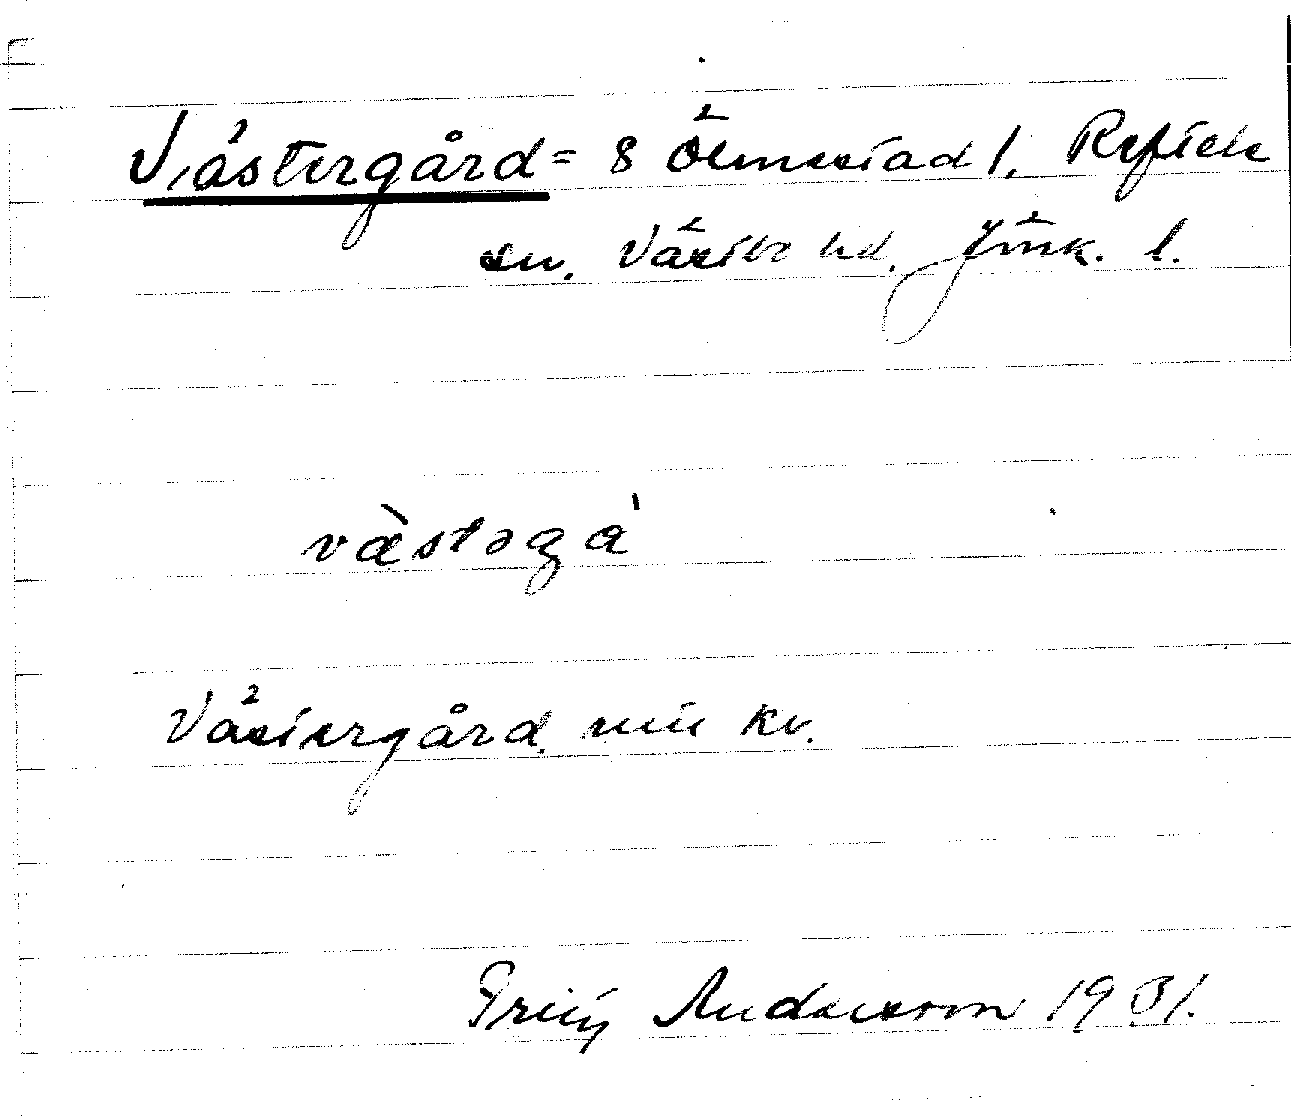 Västergård = 8 Ölmestad 1, Reftele
sn. Västbo hd. Jönk. l.
västəgá
Västergård nu kv.
Andersson 1931.